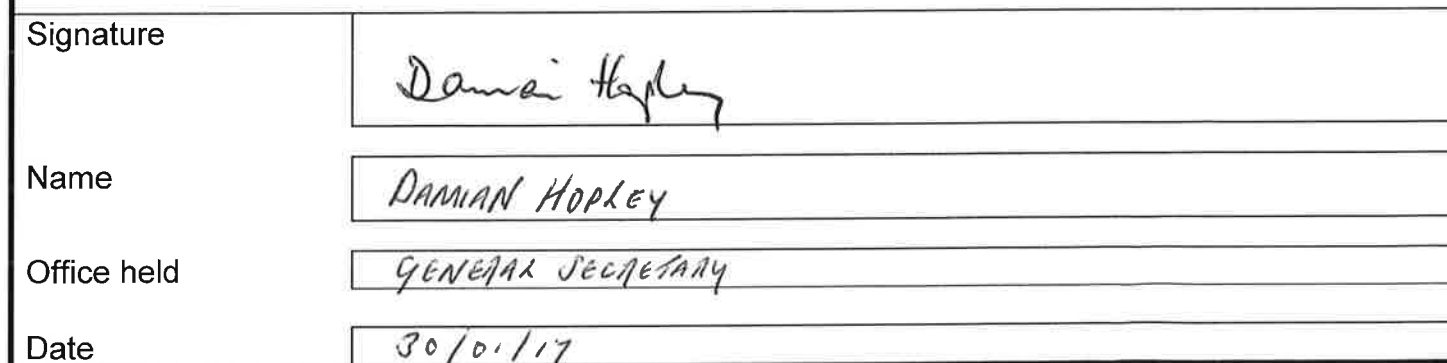 Signature
Damian Hopley
Name
DAMIAN HOPLEY
Office held
GENERAL SECRETARY
Date
30/01/17